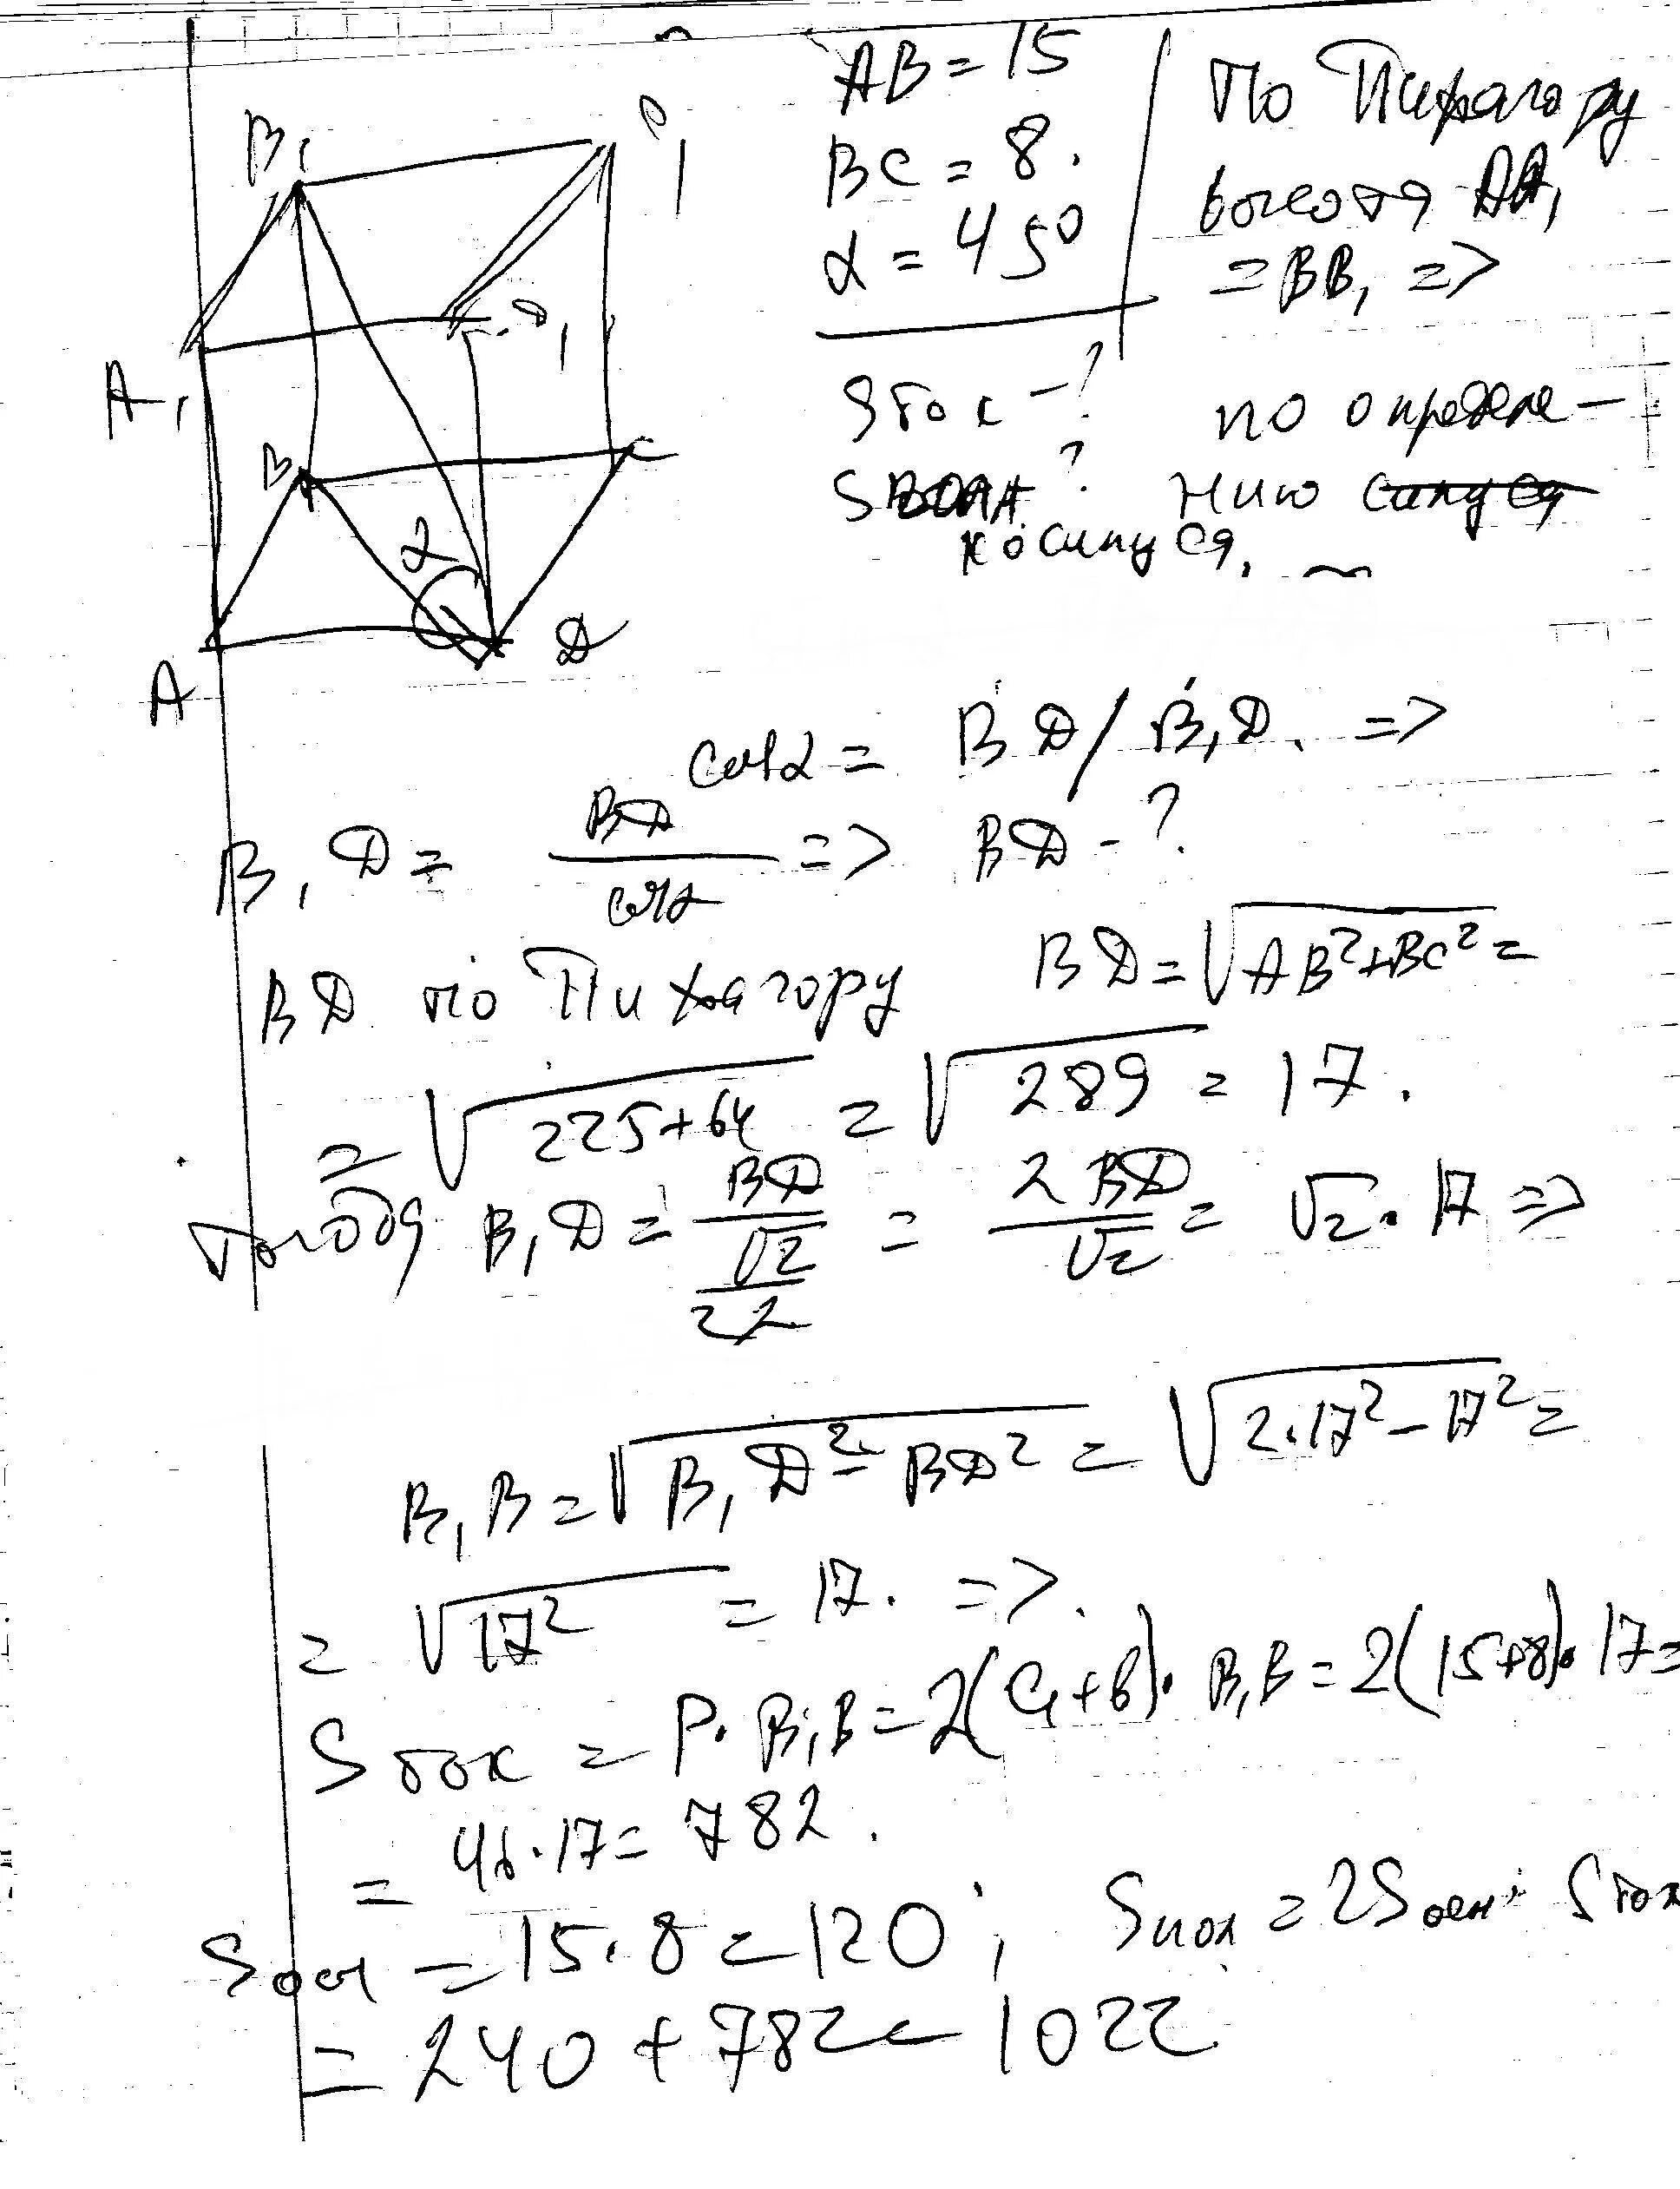 B₁
C₁
A₁
D₁
B
C
α
A
D
AB = 15
BC = 8.
α = 45°
Sбок - ?
Sполн ?
По Пифагору
высота AA₁
= BB₁ =>
по определе-
нию синуса
косинуса.
cosα = BD / B₁D. =>
B₁D = BD/cosα => BD - ?
BD по Пифагору BD = √(AB² + BC²) =
= √(225+64) = √289 = 17.
тогда B₁D = BD/(√2/2) = 2BD/√2 = √2 · 17 =>
B₁B = √(B₁D² - BD²) = √(2·17² - 17²) =
= √17² = 17. =>.
Sбок = P · B₁B = 2(a+b) · B₁B = 2(15+8) · 17 =
= 46·17 = 782.
Sосн = 15·8 = 120; Sпол = 2Sосн + Sбок
= 240 + 782 = 1022